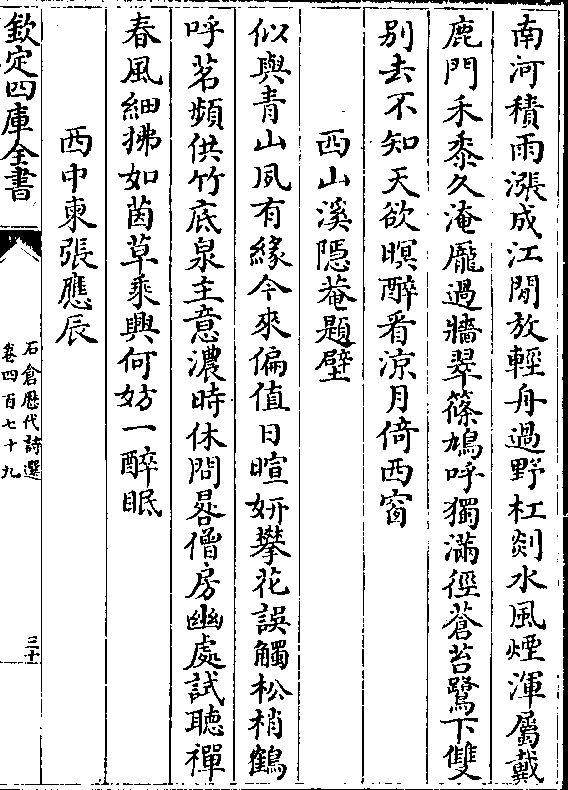 南河積雨漲成江閒放輕舟過野杠剡水風煙渾屬戴
鹿門禾黍久淹龐過牆翠篠鳩呼獨滿徑蒼苔鷺下雙
別去不知天欲暝醉看涼月倚西窗
西山溪隱菴題壁
似與青山夙有緣今來偏值日暄妍攀花誤觸松梢鶴
呼茗頻供竹底泉主意濃時休問畧僧房幽處試聽禪
春風細拂如茵草乘興何妨一醉眠
西中柬張應辰
欽定四庫全書
石倉歷代詩選
卷四百七十九
三十